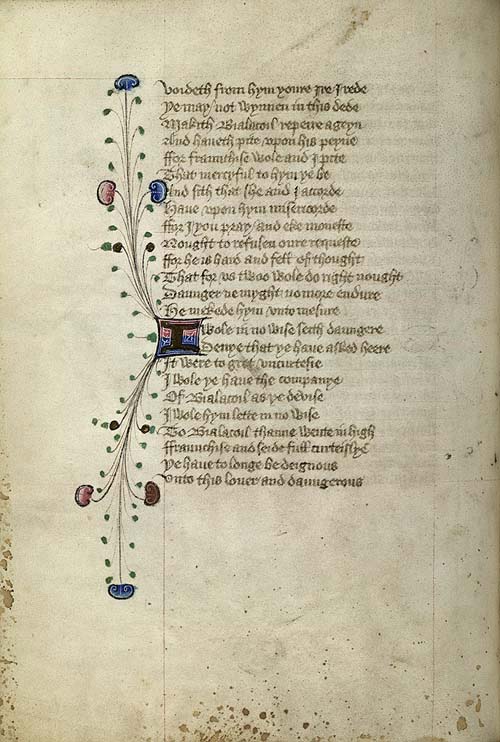 Voideth from hym youre Ire I rede
Ye may not wynnen in this dede
Makith Bialacoil repeire ageyn
And haveth pite vpon his peyne
ffor fraunchise wole and I pite
That mercyful to hym ye be
And sith that she and I accorde
Haue vpon hym misericorde
ffor I you pray and eke moneste
Nought to refusen oure requeste
ffor he is hard and fell of thought
That for vs twoo wole do right nought
Daunger ne myght no more endure
He mekede hym vnto mesure
I wole in no wise seith daungere
Denye that ye haue asked heere
It were to gret vncurtesie
I wole ye haue the companye
Of Bialacoil as ye devise
I wole hym lette in no wise
To Bialacoil thanne wente in high
ffraunchise and seide full curteislye
Ye haue to longe be deignous
Vnto this lover and daungerous